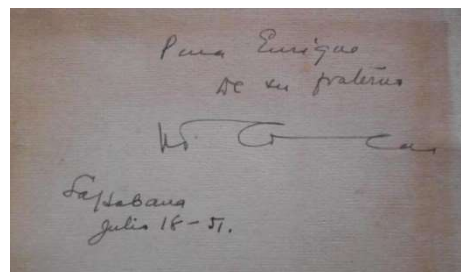 Para Enrique
De su fraterno
La Habana
Julio 18-51.